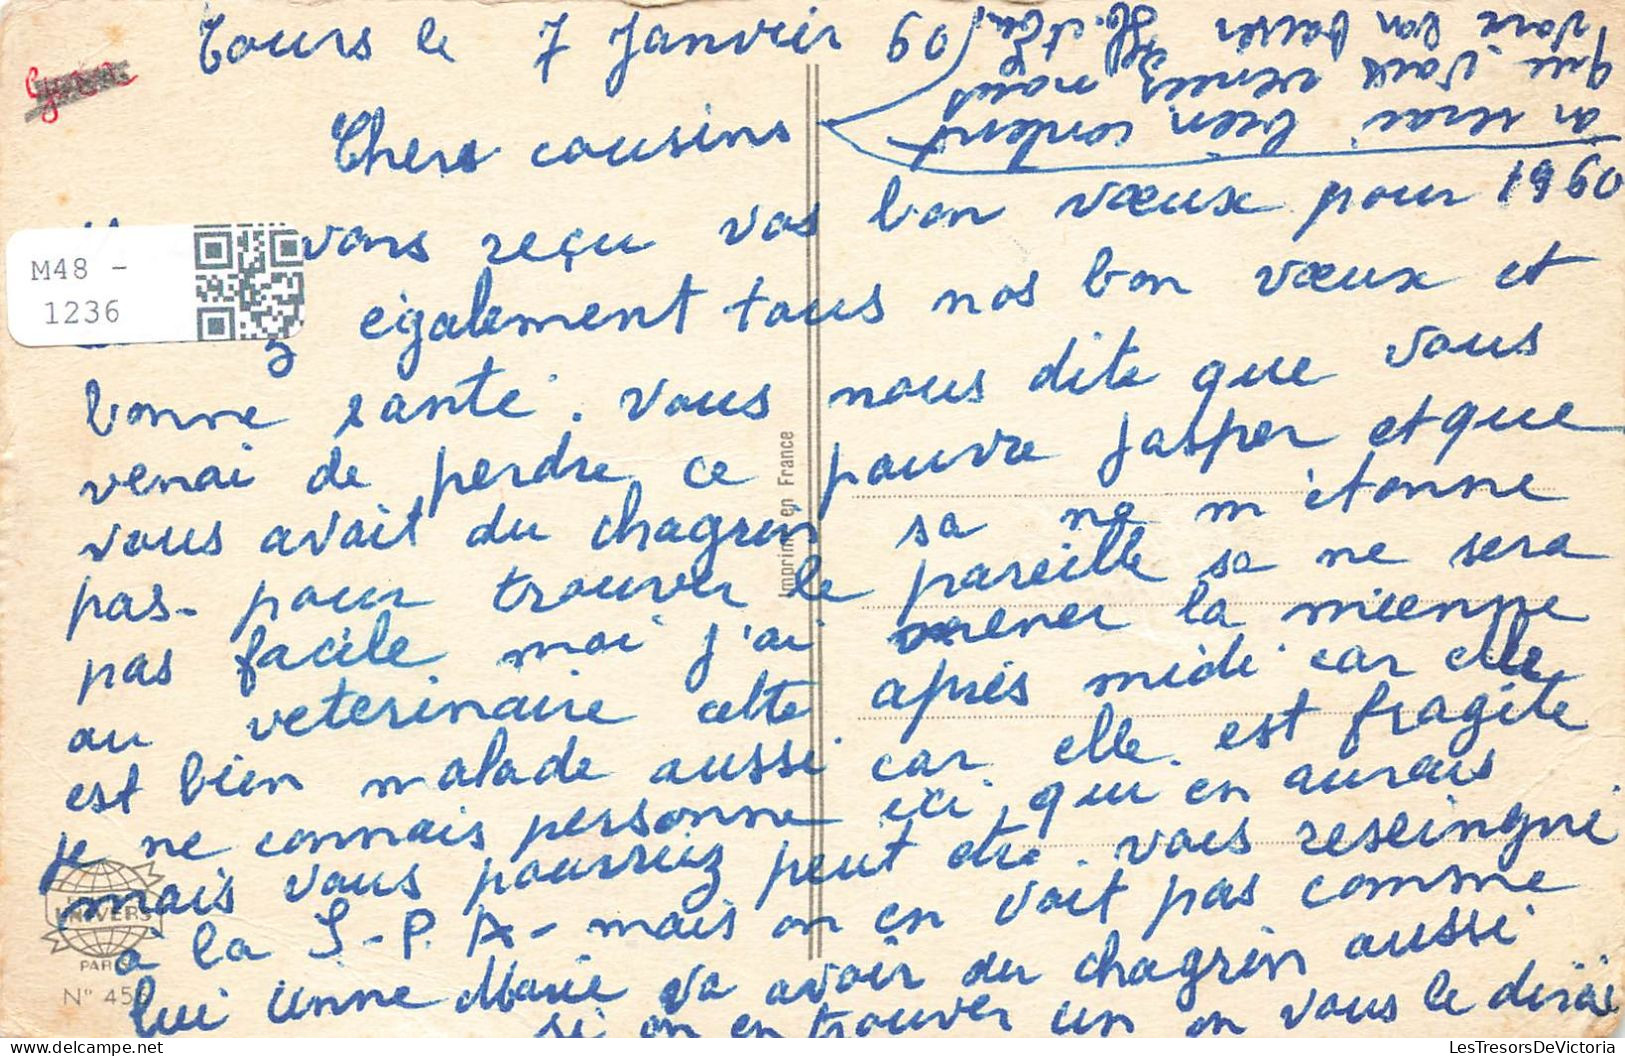 Tours le 7 Janvier 60
Chers cousins
vons reçu vos bon vœux pour 1960
également tous nos bon vœux et
bonne santé. vous nous dite que vous
venai de perdre ce pauvre Jasper et que
vous avait du chagrin sa ne m'étonne
pas - pour trouver le pareille sa ne sera
pas facile moi j'ai mener la mienne
au veterinaire cette après midi car elle
est bien malade aussi car elle est fragile
je ne connais personne ici qui en aurais
mais vous pourriez peut etre vous reseingné
à la S-P. A- mais on en voit pas comme
lui Anne Marie va avoir du chagrin aussi
si on en trouver un on vous le dirai
on serai bien contens
que vous venez nous
voir bon baiser
M48 -
1236
Imprimé en France
UNIVERS
PARIS
N° 456
LesTresorsDeVictoria